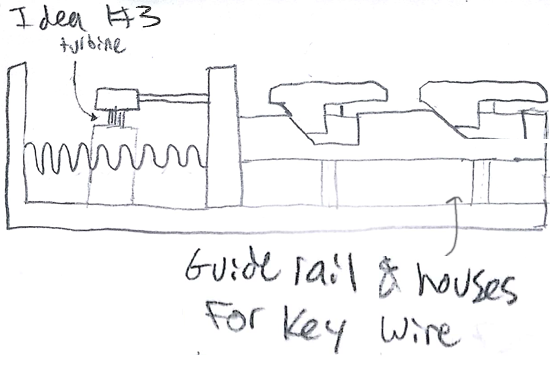 Idea #3
turbine
Guide rail & houses
For Key Wire